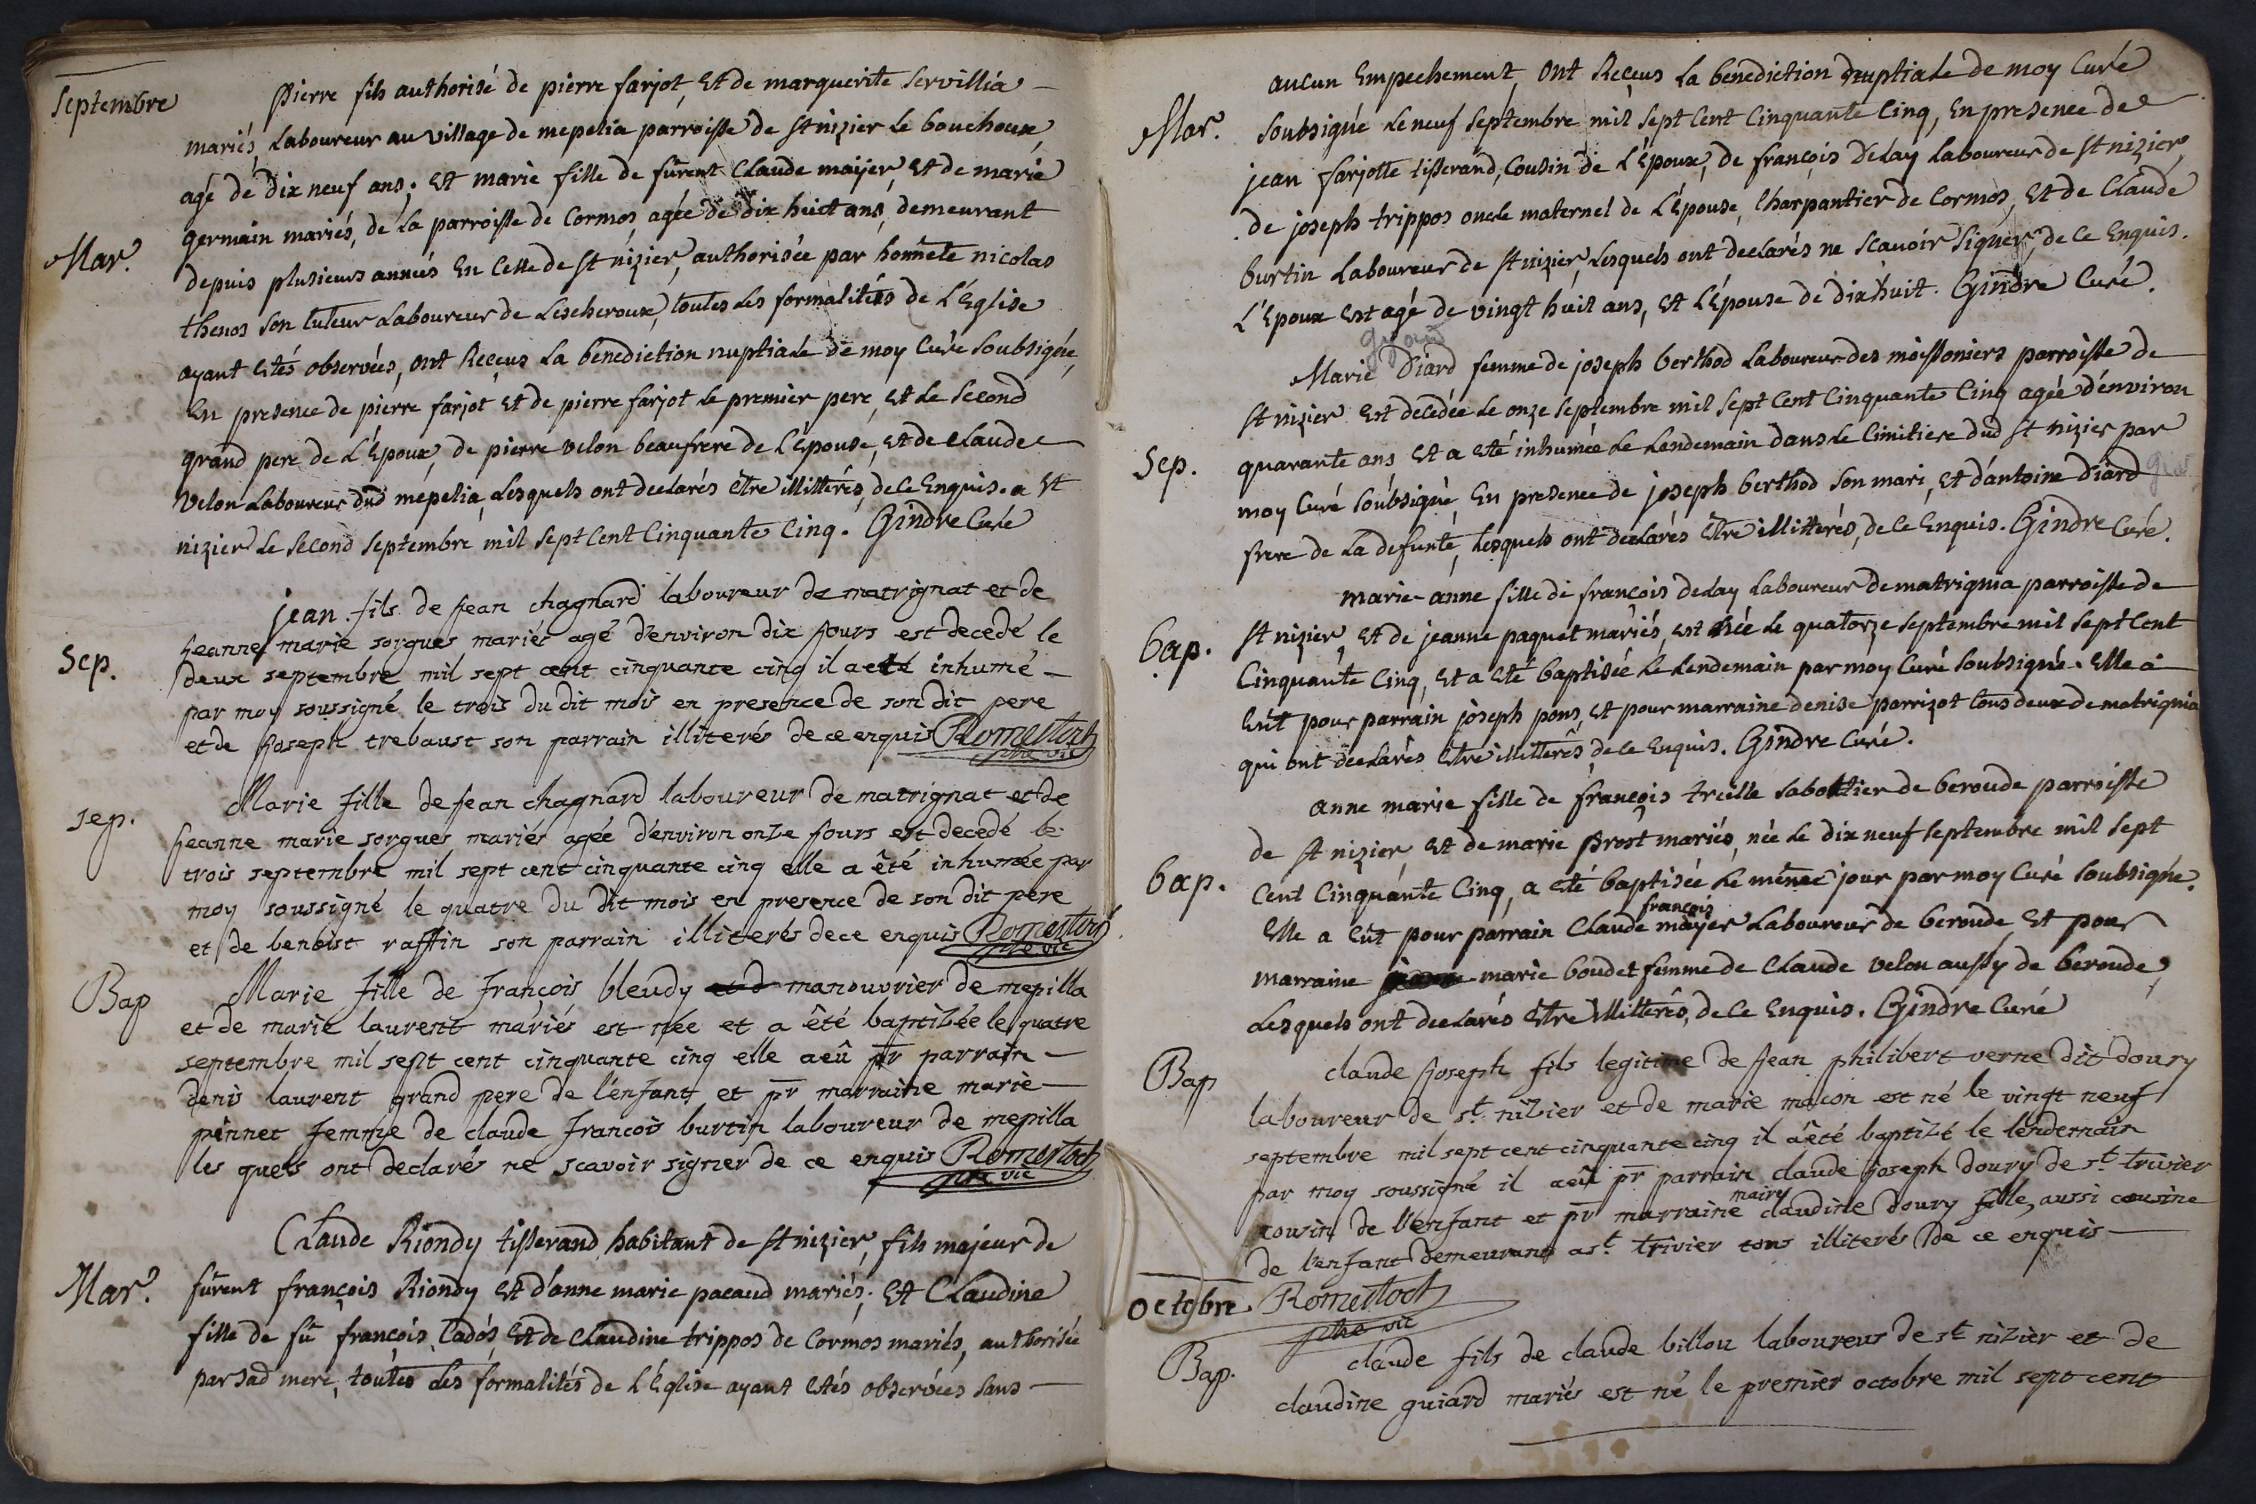 Septembre
pierre fils authorisé de pierre farjot, Et de marguerite Servillia
mariés, Laboureur au village de mepelia parroisse de St nizier Le bouchoux,
agé de dix neuf ans; Et marie fille de fûrent Claude maijer, Et de marie
germain mariés, de La parroisse de Cormos, agée de dix huict ans, demeurant
Mar.
depuis plusieurs années En Celle de St nizier, authorisée par honnête nicolas
thenos Son tuteur Laboureur de Lescheroux, toutes Les formalitées de L'Eglise
ayant Etés observées, ont Reçeus La benediction nuptiale de moy Curé Soubsigné,
En presence de pierre farjot Et de pierre farjot Le premier pere, Et Le Second
grand pere de L'Epoux, de pierre velon beaufrere de L'Epouse, Et de Claude
velon Laboureur dud mépelia, Lesquels ont declarés Etre illitterés, de Ce Enquis. a St
nizier Le Second Septembre mil Sept Cent Cinquante Cinq. Gindre Curé
jean fils de jean chagnard laboureur de matrignat et de
jeanne marie sorgues mariés agé d'environ dix jours est decedé le
Sep.
deux septembre mil sept cent cinquante cinq il a eté inhumé
par moy soussigné le trois du dit mois en presence de son dit pere
et de joseph trebaust son parrain illiterés de ce enquis Romestoch
ptre vic
Marie fille de jean chagnard laboureur de matrignat et de
sep.
jeanne marie sorgues mariés agée d'environ onze jours est decedé le
trois septembre mil sept cent cinquante cinq elle a êté inhumée par
moy soussigné le quatre du dit mois en presence de son dit pere
et de benoist raffin son parrain illiterés de ce enquis Romestoch
ptre vic
Bap
Marie fille de françois bleudy et d manouvrier de mepilla
et de marie laurent mariés est née et a êté baptizée le quatre
septembre mil sept cent cinquante cinq elle a eû pr parrain
denis laurent grand pere de l'enfant et pr marraine marie
pinnet femme de claude francois burtin laboureur de mepilla
les quels ont declarés ne scavoir signer de ce enquis Romestoch
ptre vic
Claude Riondy tisserand habitant de St nizier, fils majeur de
Mar.
fûrent françois Riondy Et d'anne marie pacaud mariés; Et Claudine
fille de fû françois Cados, Et de Claudine trippos de Cormos mariés, authorisée
par Sad mere, toutes Les formalités de L'Eglise ayant Etés observées Sans
aucun Empechement, ont Reçeus La benediction nuptiale de moy Curé
Mar.
Soubsigné Le neuf Septembre mil Sept Cent Cinquante Cinq, En presence de
jean farjotte tisserand, Cousin de L'Epoux, de françois delay Laboureur de St nizier,
de joseph trippos oncle maternel de L'Epouse, Charpantier de Cormos, Et de Claude
burtin Laboureur de St nizier, Lesquels ont declarés ne Scavoir Signer, de Ce Enquis.
L'Epoux Est agé de vingt huit ans, Et L'Epouse de dix huit. Gindre Curé.
Marie Diard femme de joseph berthod Laboureur des moissoniers parroisse de
St nizier Est decedée Le onze Septembre mil Sept Cent Cinquante Cinq agée d'environ
Sep.
quarante ans Et a Eté inhumée Le Lendemain dans Le Cimitiere dud St nizier par
moy Curé Soubsigné, En presence de joseph berthod Son mari, Et d'antoine Diard
frere de La defunte, Lesquels ont declarés Etre illitterés, de Ce Enquis. Gindre Curé.
marie-anne fille de françois delay Laboureur de matrignia parroisse de
bap.
St nizier, Et de jeanne paquet mariés, Est née Le quatorze Septembre mil Sept Cent
Cinquante Cinq, Et a Eté baptisée Le Lendemain par moy Curé Soubsigné. Elle a
Eût pour parrain joseph pons, Et pour marraine denise parrizot tous deux de matrignia
qui ont declarés Etre illitterés, de Ce Enquis. Gindre Curé.
anne marie fille de françois treille Sabottier de beroude parroisse
de St nizier, Et de marie prost mariés, née Le dix neuf Septembre mil Sept
bap.
Cent Cinquante Cinq, a Eté baptisée Le même jour par moy Curé Soubsigné.
françois
Elle a Eût pour parrain Claude maijer Laboureur de beroude, Et pour
marraine marie boudet femme de Claude velon aussy de beroude,
Lesquels ont declarés Etre illitterés, de Ce Enquis. Gindre Curé
Bap
claude joseph fils legitime de jean philibert verne dit doury
laboureur de st nizier et de marie macon est né le vingt neuf
septembre mil sept cent cinquante cinq il a êté baptizé le lendemain
par moy soussigné il a eû pr parrain claude joseph doury de st trivier
mairy
cousin de l'enfant et pr marraine claudine doury fille aussi cousine
de l'enfant demeurans a st trivier tous illiterés de ce enquis
octobre
Romestoch
ptre vic
Bap.
claude fils de claude billou laboureur de st nizier et de
claudine guiard mariés est né le premier octobre mil sept cent